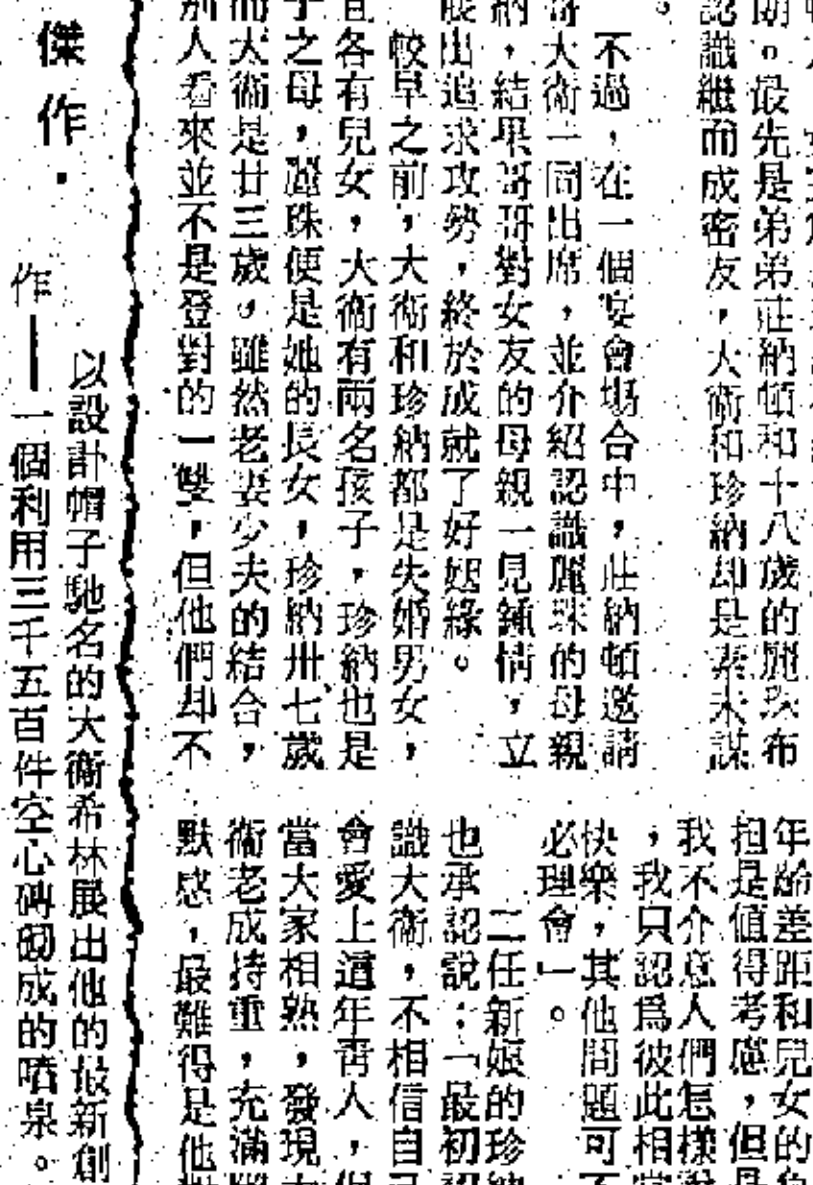 期。最先是弟弟莊納頓和十八歲的麗珠布
認識繼而成密友，大衞和珍納却是素未謀
。
不過，在一個宴會場合中，莊納頓邀請
哥大衞一同出席，並介紹認識麗珠的母親
納，結果哥哥對女友的母親一見鍾情，立
展出追求攻勢，終於成就了好姻緣。
較早之前，大衞和珍納都是失婚男女，
且各有兒女，大衞有兩名孩子，珍納也是
子之母，麗珠便是她的長女，珍納卅七歲
而大衞是廿三歲。雖然老妻少夫的結合，
別人看來並不是登對的一雙，但他們却不
年齡差距和兒女的負
担是值得考慮，但是
我不介意人們怎樣說
，我只認爲彼此相當
快樂，其他問題可不
必理會」。
二任新娘的珍納
也承認說：「最初認
識大衞，不相信自己
會愛上這年青人，但
當大家相熟，發現大
衞老成持重，充滿幽
默感，最難得是他對
傑作・
以設計帽子馳名的大衞希林展出他的最新創
作——一個利用三千五百件空心磚砌成的噴泉。